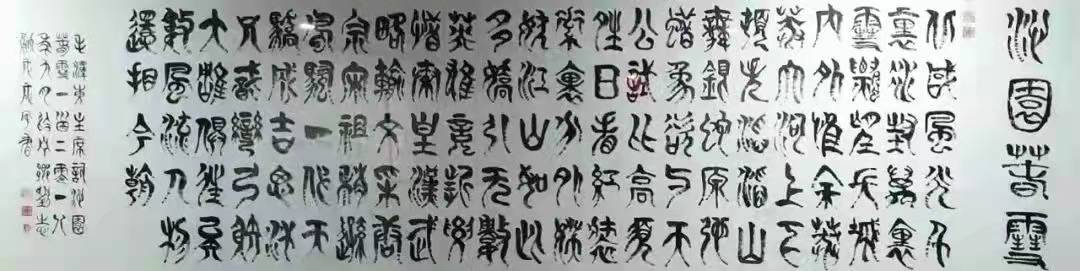 沁園春雪
北國風光千
裏冰封萬裏
雪飄望長城
內外惟余莽
莽大河上下
頓失滔滔山
舞銀蛇原馳
蠟象欲與天
公試比高須
晴日看紅裝
素裹分外妖
嬈江山如此
多嬌引無數
英雄競折腰
惜秦皇漢武
略輸文采唐
宗宋祖稍遜
風騷一代天
驕成吉思汗
只識彎弓射
大雕俱往矣
數風流人物
還看今朝
毛澤東主席詞沁園
春雪一首二零一八